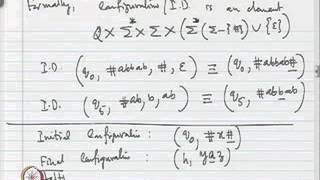 Formally, Configuration / I.D. is an element
Q × Σ* × Σ × (Σ*(Σ-{#}) ∪ {ε})
I.D: (q₀, #abbab, #, ε) ≡ (q₀, #abbab#)
I.D: (q₅, #ab, b, ab) ≡ (q₅, #abbab)
Initial Configuration : (q₀, #x#)
Final Configuration : (h, yaz)